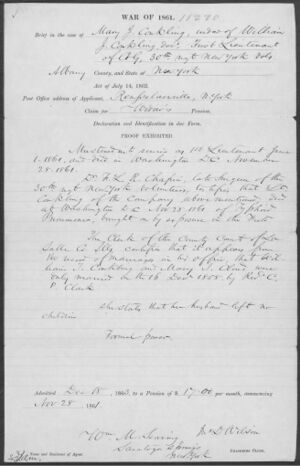 WAR OF 1861. 11220
Brief in the case of Mary J. Conkling, widow of William
J. Conkling dec. First Lieutenant
of Co. G, 30th regt New York Vols
Albany County, and State of New York
Act of July 14, 1862.
Post Office address of Applicant, N. York
Claim for Widow's Pension.
Declaration and Identification in due Form.
PROOF EXHIBITED.
Muster in service as 1st Lieutenant June
1. 1861. and died in Washington D.C. November
28. 1861.
Dr. F. L. R. Chapin, late Surgeon of the
30th regt New York Volunteers, testifies that Lt.
Conkling of the Company above mentioned, died
at Washington D.C. Nov 28. 1861 of Typhoid
Pneumonia, brought on by exposure in the
The Clerk of the County Court of La
Salle Co. Ills. certifies that it appears from
the record of marriages in his office, that Wil
liam J. Conkling and Mary J. were
duly married on the 16 Decr 1858 by Rev. C.
P. Clark
She states that her husband left no
children
Formal proof.
Admitted Dec 18, 1863, to a Pension of $ 17.00 per month, commencing
Nov 28 1861.
Wm. M.
Saratoga Springs
New York
J. D. Wilson
EXAMINING CLERK.
Name and Residence of Agent.